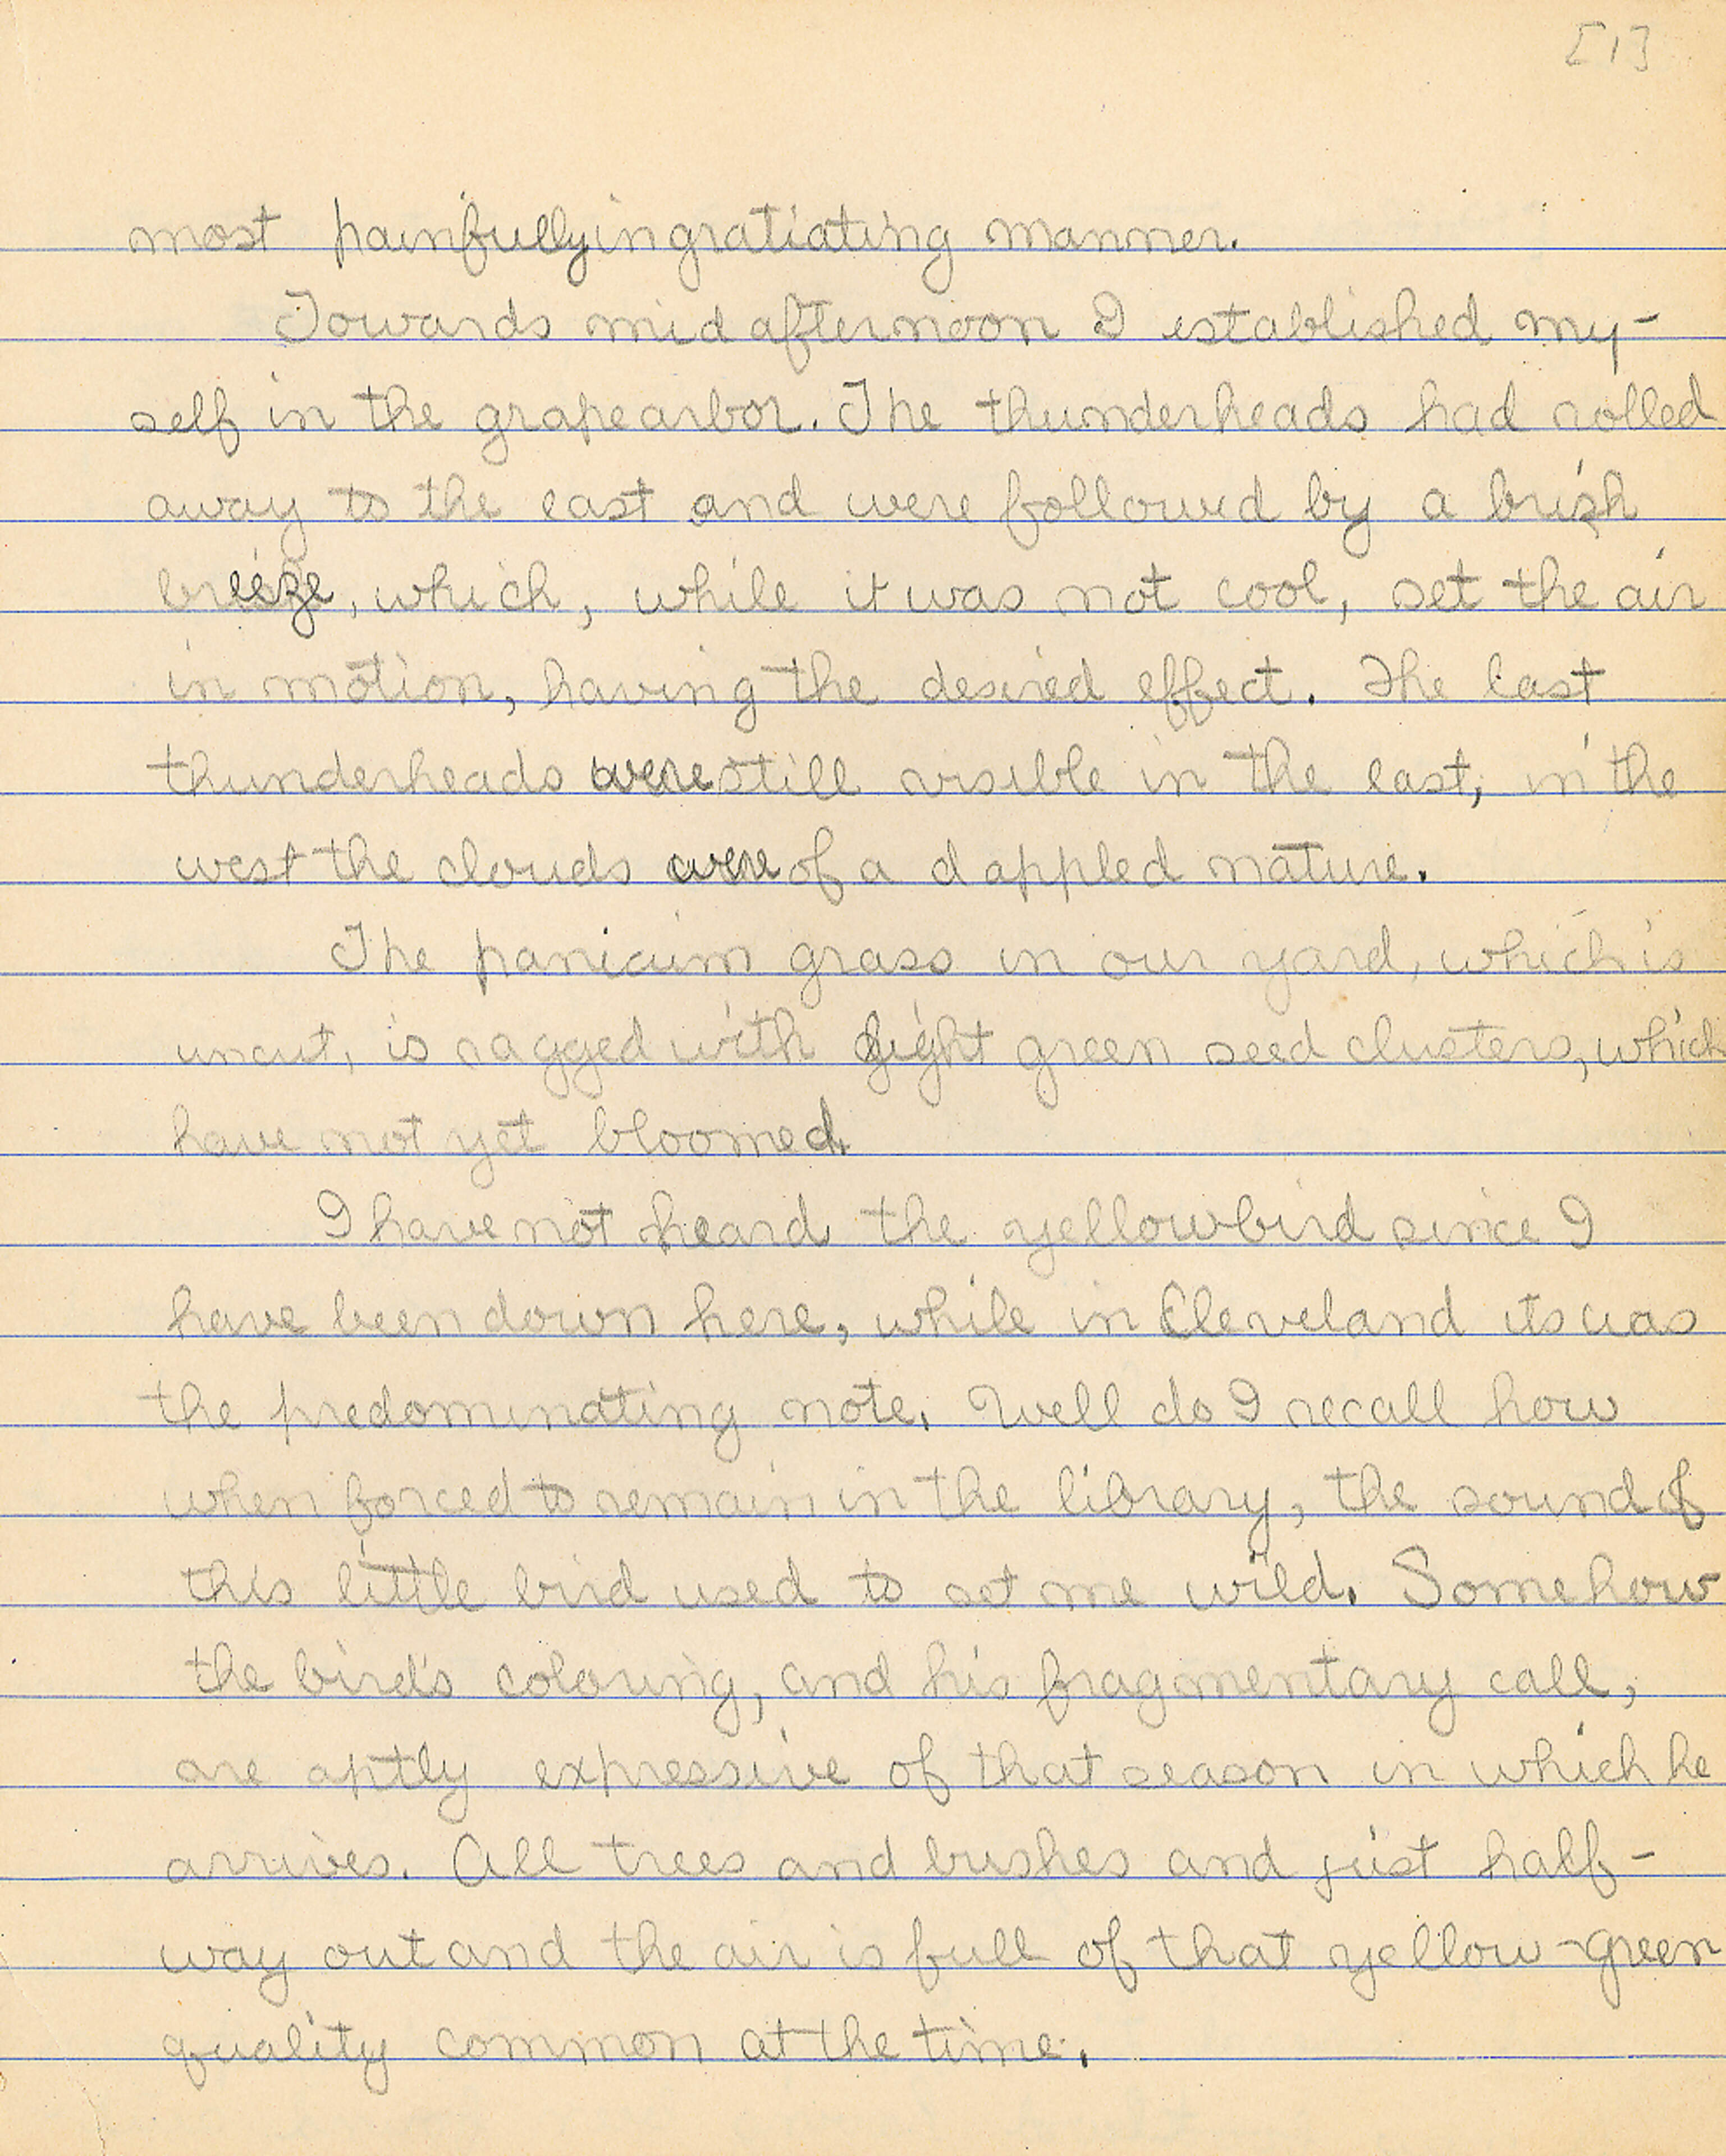 [1]
most painfully ingratiating manner.
Towards mid afternoon I established my-
self in the grapearbor. The thunderheads had rolled
away to the east and were followed by a brisk
breeze, which, while it was not cool, set the air
in motion, having the desired effect. The last
thunderheads were still visible in the east, in the
west the clouds were of a dappled nature.
The panicum grass in our yard, which is
uncut, is ragged with light green seed clusters, which
have not yet bloomed.
I have not heard the yellowbird since I
have been down here, while in Cleveland its was
the predominating note. Well do I recall how
when forced to remain in the library, the sound of
this little bird used to set me wild. Somehow
the bird's coloring, and his fragmentary call,
are aptly expressive of that season in which he
arrives. All trees and bushes and just half-
way out and the air is full of that yellow-green
quality common at the time.